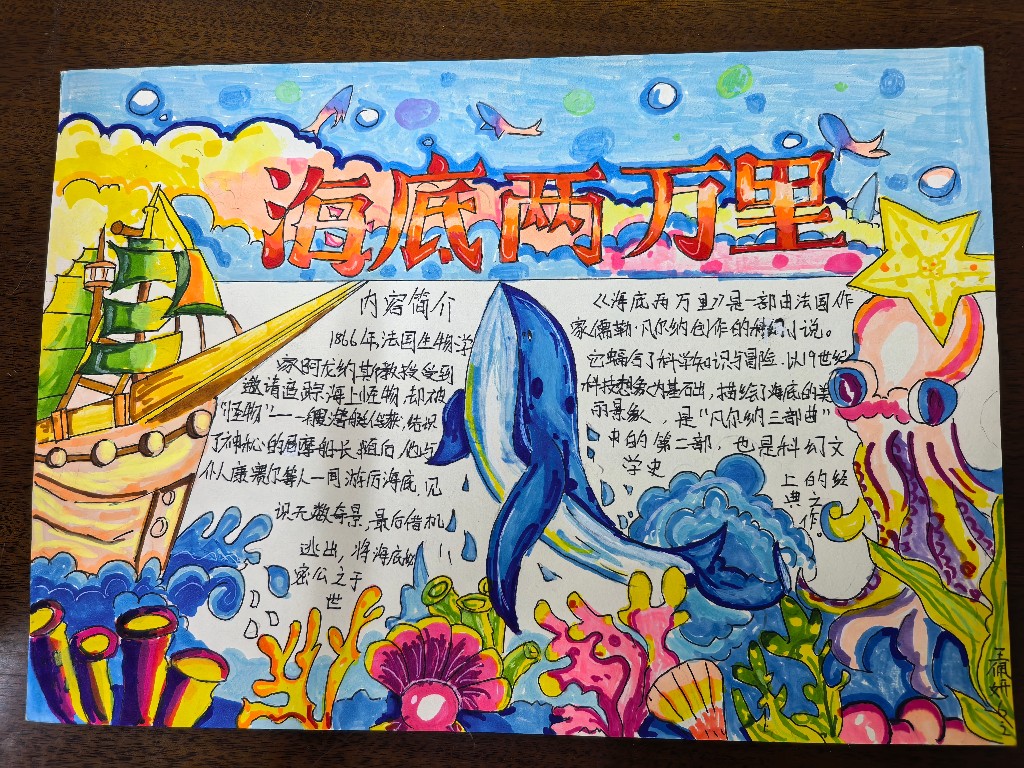 海底两万里
内容简介
1866年,法国生物学
家阿龙纳斯教授受到
邀请追踪海上怪物,却被
"怪物"——一艘潜艇俘获,结识
了神秘的尼摩船长,随后,他与
仆人康赛尔等人一同游历海底,见
识无数奇景,最后借机
逃出,将海底秘
密公之于
世
《海底两万里》是一部由法国作
家儒勒·凡尔纳创作的科幻小说。
它蝠合了科学知识与冒险,以19世纪
科技想象为基础,描绘了海底的美
丽景象,是"凡尔纳三部曲"
中的第二部,也是科幻文
学史
上的经
典之
作。
6.2